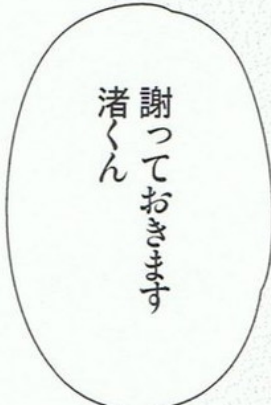 謝っておきます
渚くん